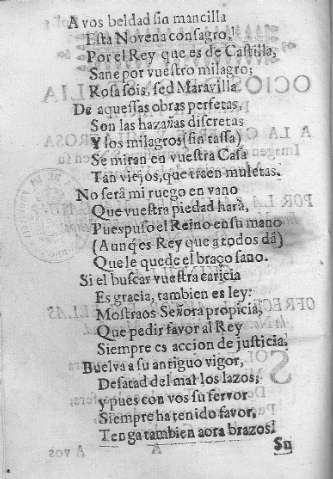 A vos beldad sin mancilla
Esta Novena consagro,
Por el Rey que es de Castilla,
Sane por vuestro milagro;
Rosa sois, sed Maravilla
De aquessas obras perfetas,
Son las hazañas discretas
Y los milagros (sin tassa)
Se miran en vuestra Casa
Tan viejos, que traen muletas.
No serà mi ruego en vano
Que vuestra piedad harà,
Pues puso el Reino en su mano
(Aunq̃ es Rey que a todos dà)
Que le quede el braço sano.
Si el buscar vuestra caricia
Es gracia, tambien es ley:
Mostraos Señora propicia,
Que pedir favor al Rey
Siempre es accion de justicia.
Buelva a su antiguo vigor,
Desatad del mal los lazos;
y pues con vos su fervor
Siempre ha tenido favor,
Tenga tambien aora brazos.
Su